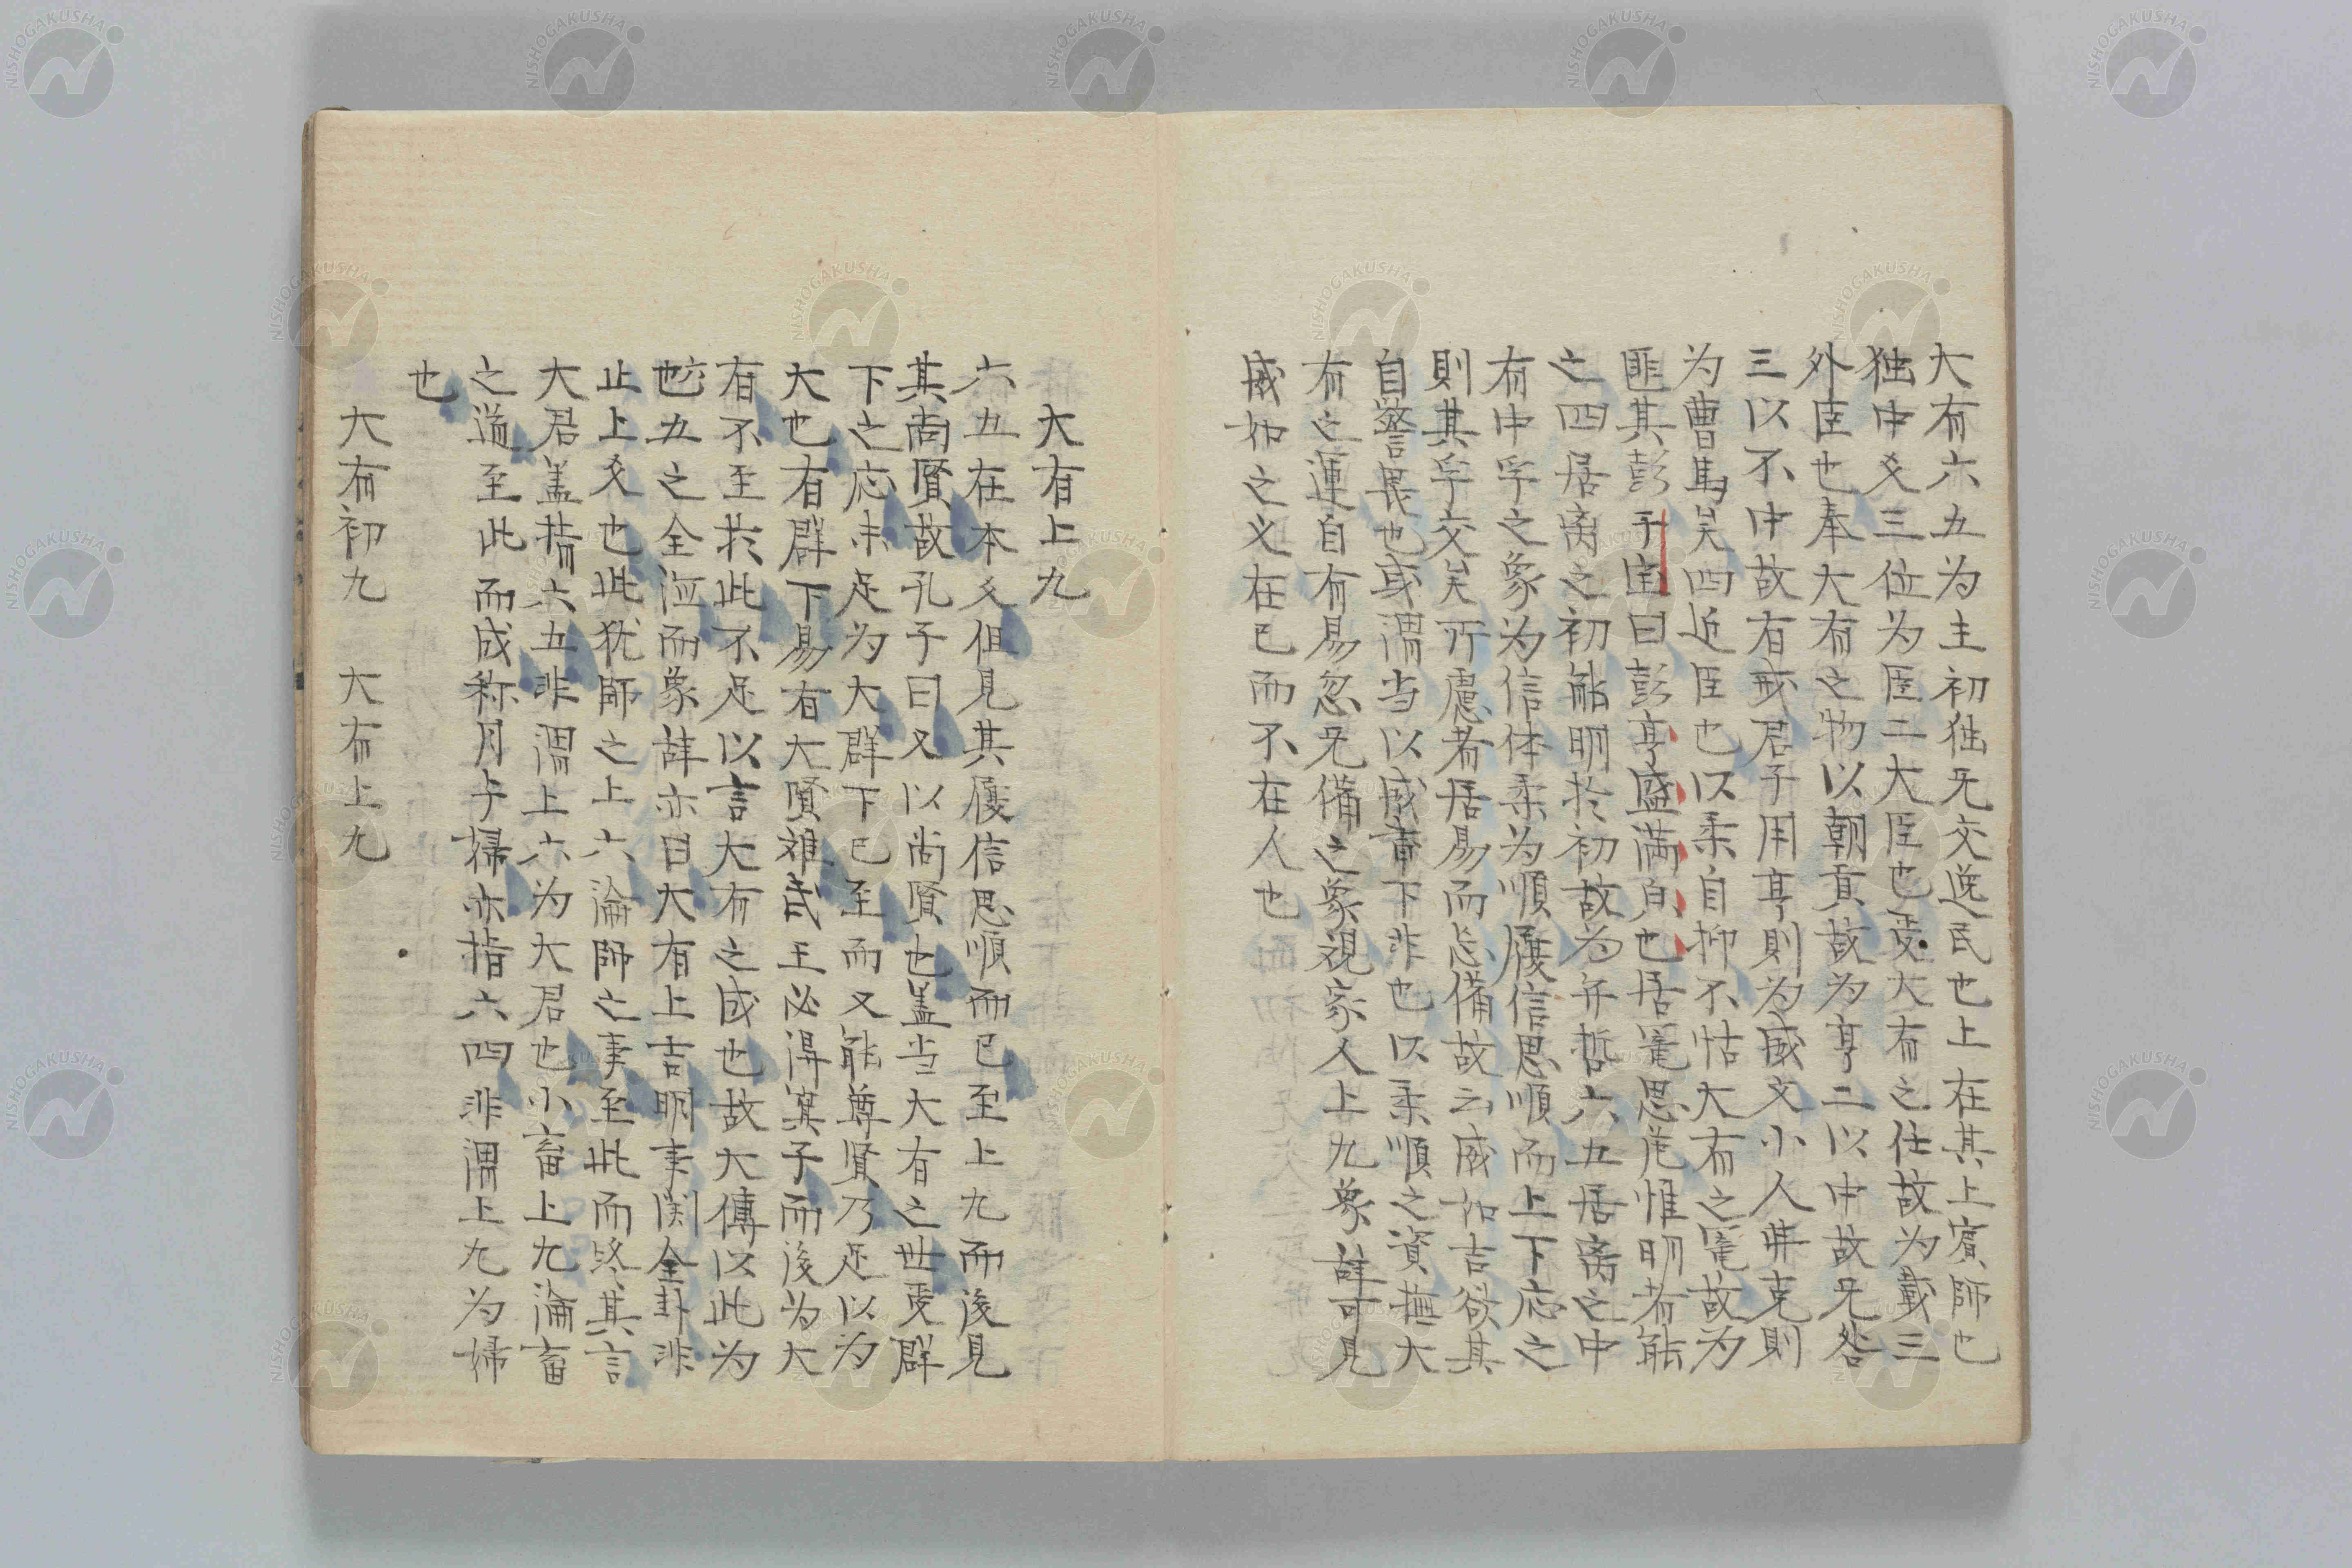 大有六五为主初独无交逸民也上在其上賓師也
独中爻三位为臣二大臣也受大有之任故为載三
外臣也奉大有之物以朝貢故为亨二以中故无咎
三以不中故有戒君子用亨則为威文小人弗克則
为曹馬矣四近臣也以柔自抑不怙大有之寵故为
匪其彭干宝曰彭亨盛满皃也居寵思危惟明者能
之四居离之初能明於初故为弁哲六五居离之中
有中孚之象为信体柔为順履信思順而上下応之
則其孚交矣所慮者居易而忘備故云威如吉欲其
自警畏也或謂当以威書下非也以柔順之資撫大
有之運自有易忽无備之象視家人上九象辞可見
威如之义在己而不在人也
大有上九
六五在本爻但見其履信思順而已至上九而後見
其尚賢故孔子曰又以尚賢也盖当大有之世受群
下之応未足为大群下已至而又能尊賢乃足以为
大也有群下易有大賢难武王必得箕子而後为大
有不至於此不足以言大有之成也故大傳以此为
五之全爻而象辞亦曰大有上吉明事関全卦非
止上爻也此犹師之上六論師之事至此而终其言
大君盖指六五非謂上六为大君也小畜上九論畜
之道至此而成称月与婦亦指六四非謂上九为婦
也
大有初九　大有上九
NISHOGAKUSHA